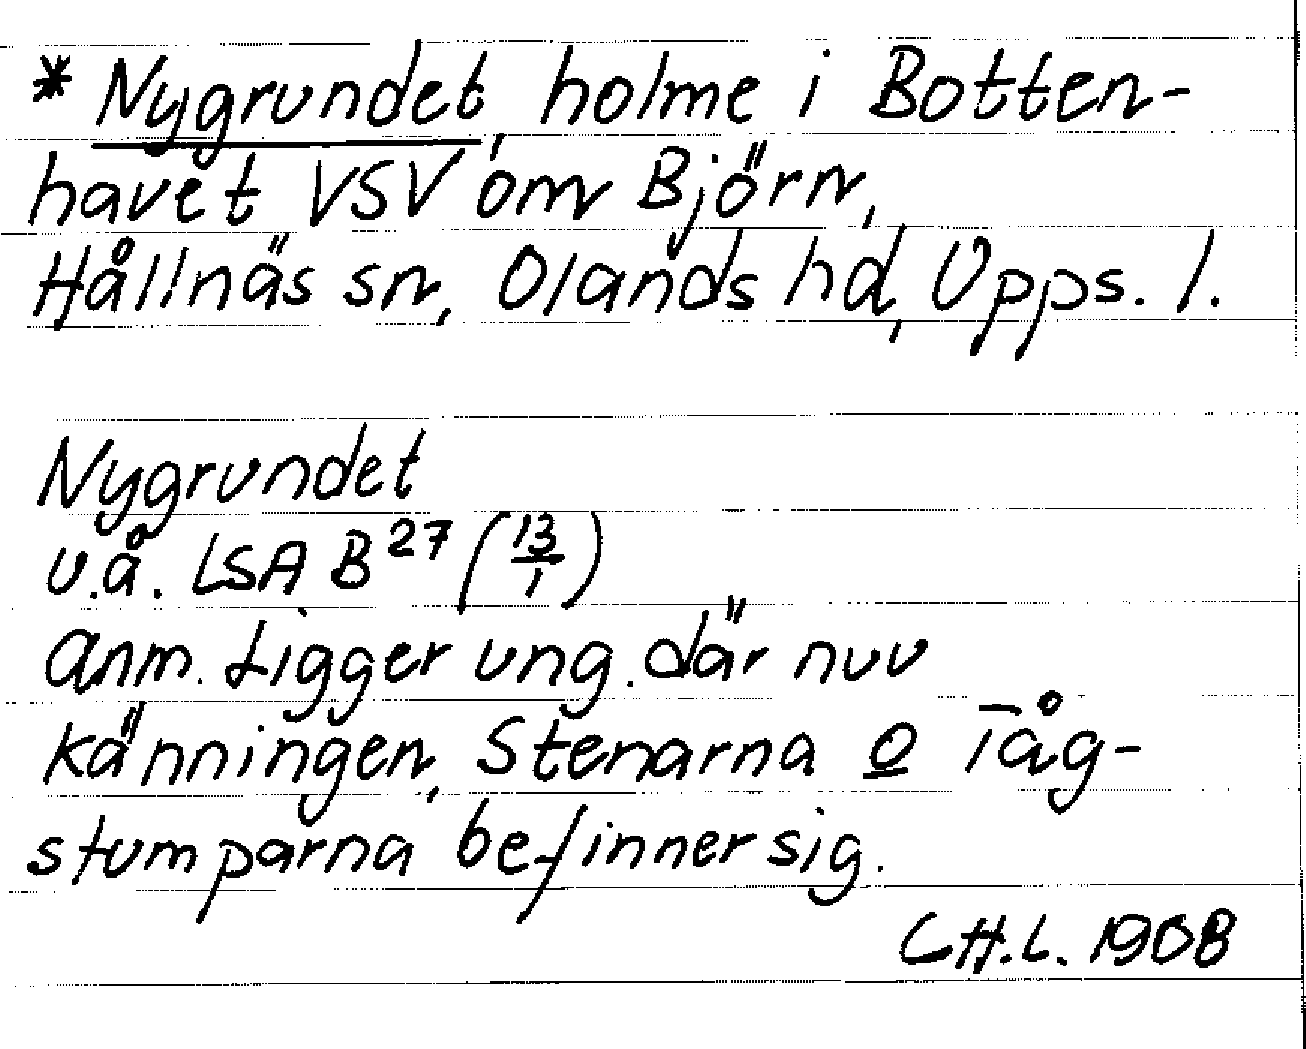 * Nygrundet, holme i Botten-
havet VSV om Björn,
Hållnäs sn, Olands hd, Upps. l.
Nygrundet
u.å. LSA B27 (13/1)
Anm. Ligger ung. där nuv
känningen, Stenarna o Tåg-
stumparna befinner sig.
C.H.L. 1908